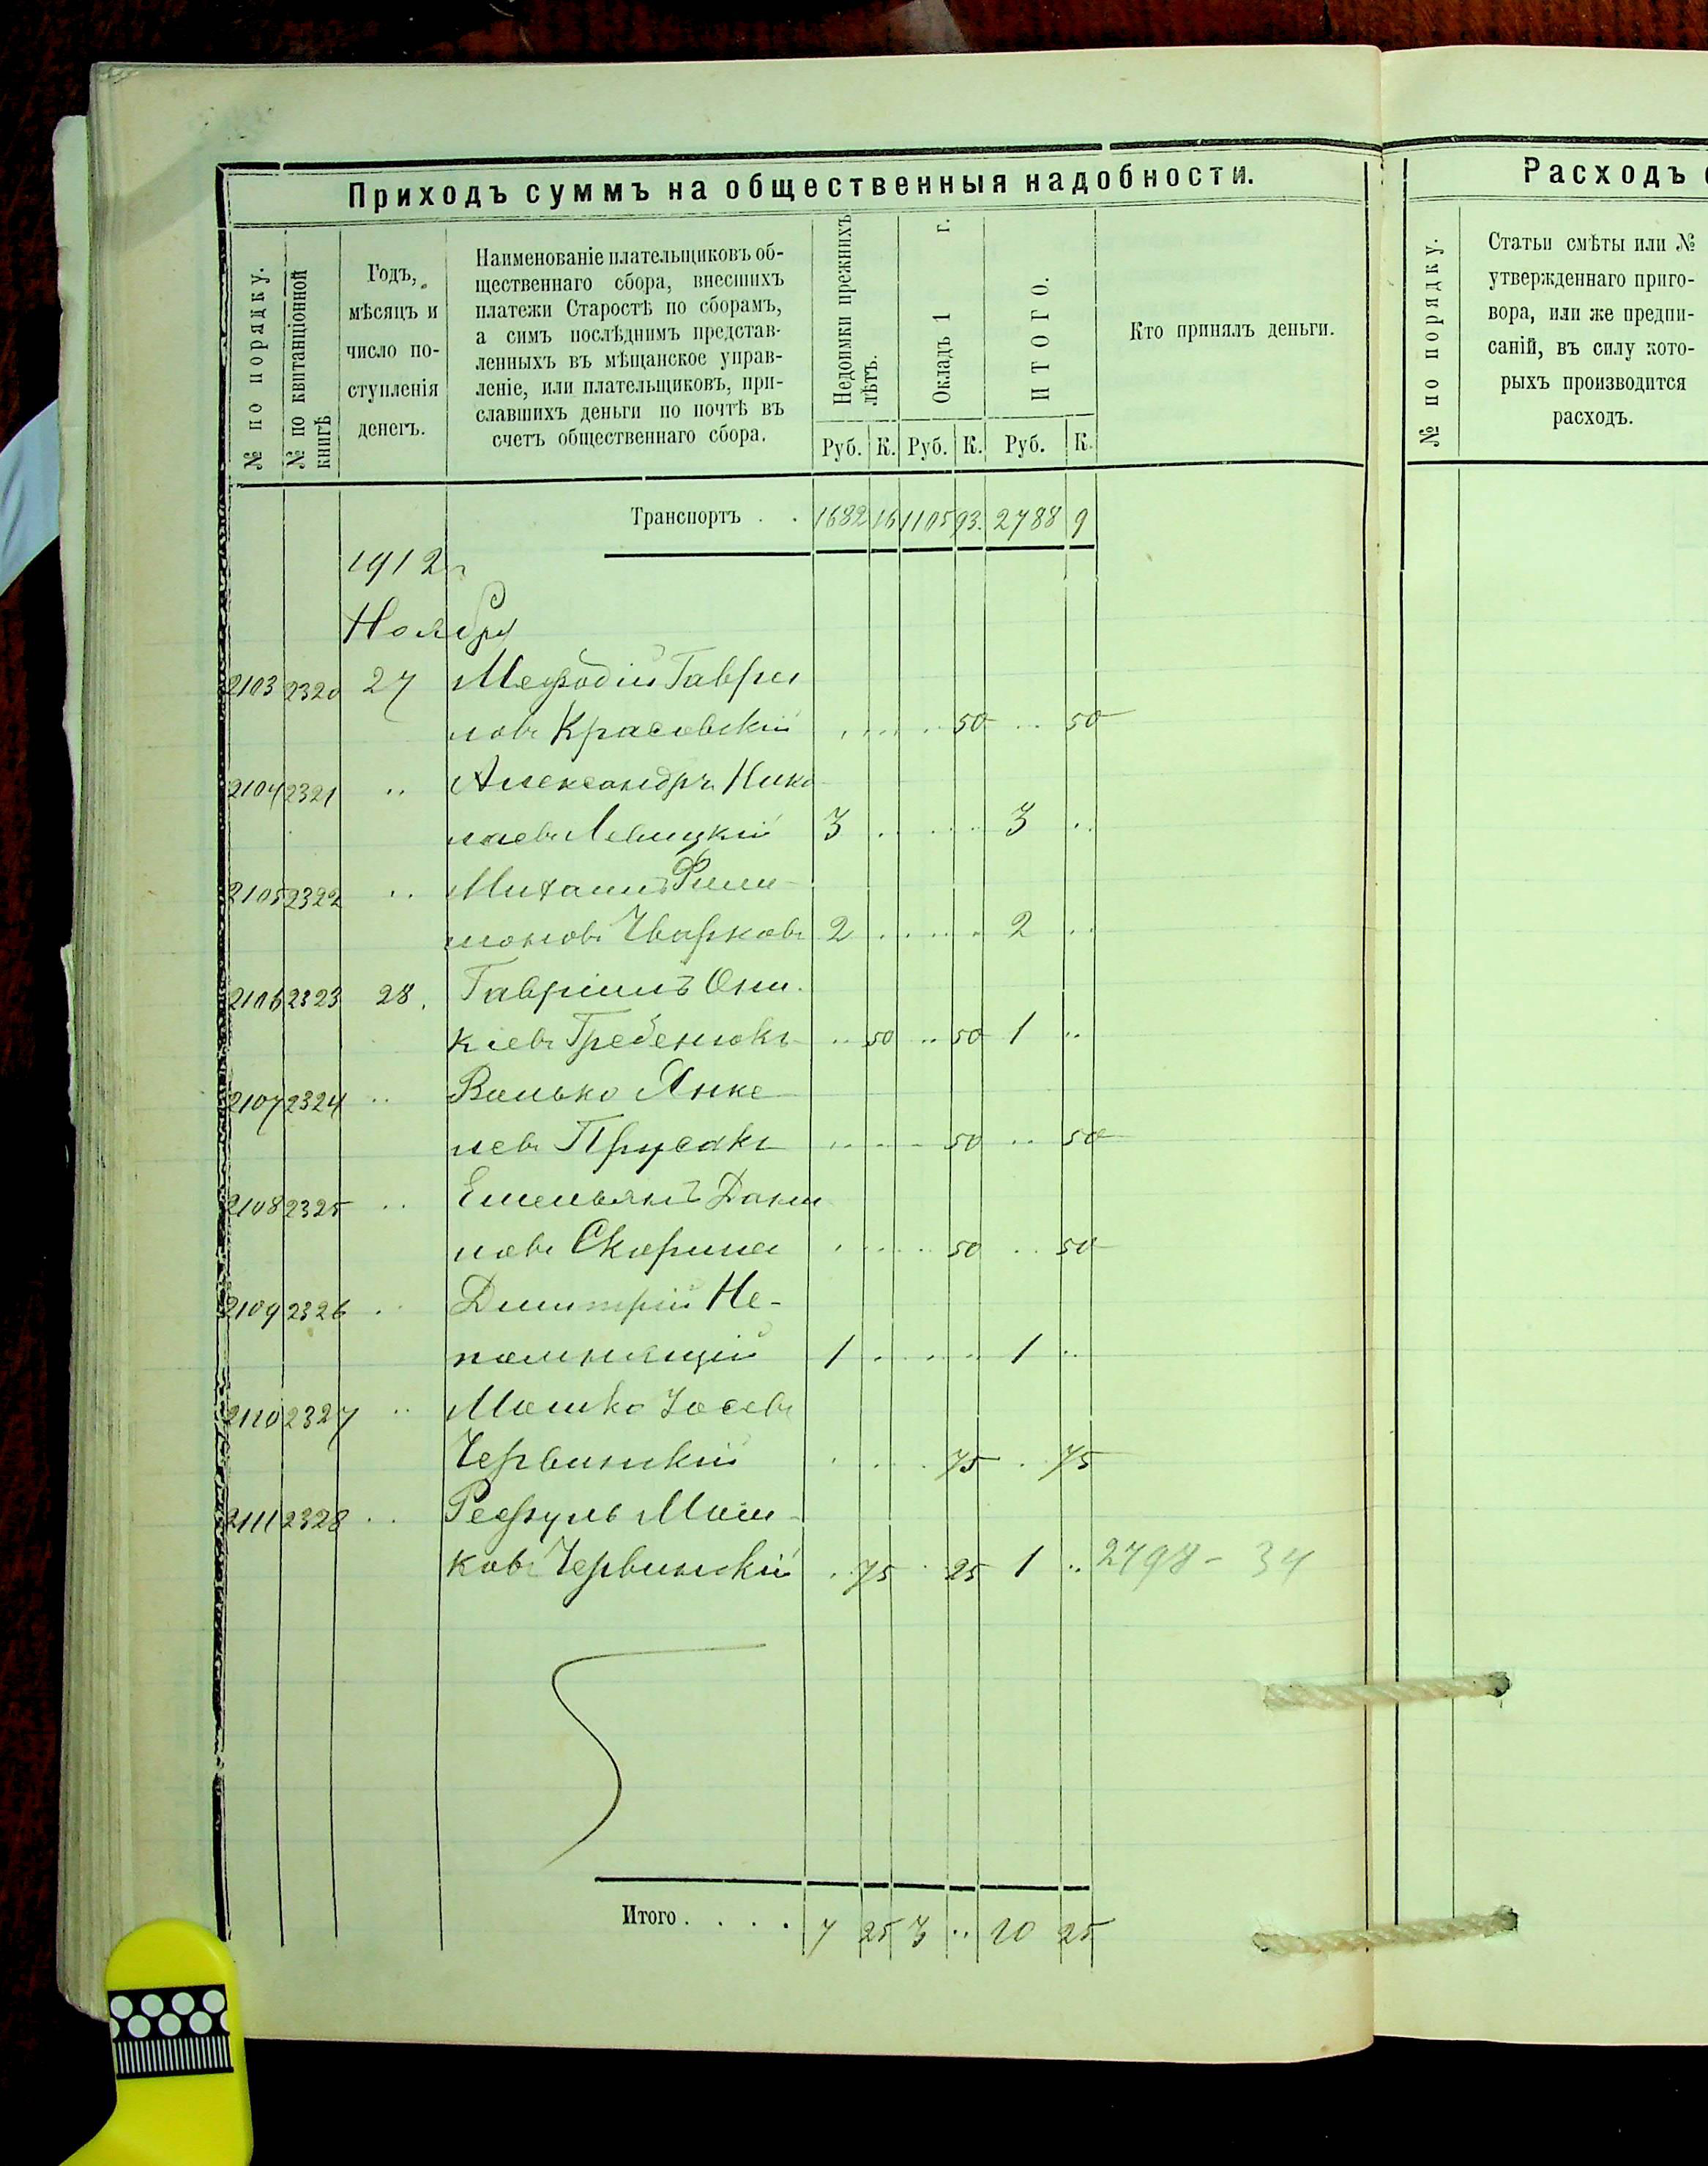 Приходъ суммъ на общественныя надобности.
№ по порядку.
№ по квитанціонной книгѣ
Годъ,
мѣсяцъ и
число по-
ступленія
денегъ.
Наименованіе плательщиковъ об-
щественнаго сбора, внесшихъ
платежи Старостѣ по сборамъ,
а симъ послѣднимъ представ-
ленныхъ въ мѣщанское управ-
леніе, или плательщиковъ, при-
славшихъ деньги по почтѣ въ
счетъ общественнаго сбора.
Недоимки прежнихъ лѣтъ.
Окладъ 1 г.
ИТОГО.
Кто принялъ деньги.
Руб. К. Руб. К. Руб. К.
Транспортъ . . 1682 16 1105 93 2788 9
1912 г
Ноября
2103 2320 27 Мефодій Гаври
ловъ Красовскій 50 50
2104 2321 " Александръ Нико
лаевъ Левицкій 3 3
2105 2322 " Михаилъ Фили-
моновъ Чварковъ 2 2
2106 2323 28. Гавріилъ Они-
кіевъ Гребенюкъ 50 50 1
2107 2324 " Волько Янке
левъ Прусакъ 50 50
2108 2325 " Емельянъ Дани
ловъ Скорина 50 50
2109 2326 " Димитрій Не-
помнящій 1 1
2110 2327 " Мошко Іосевъ
Червинскій 75 75
2111 2328 " Рефуль Мош-
ковъ Червинскій 75 25 1 2798 - 34
Итого . . . . 7 25 3 .. 10 25
Расходъ
№ по порядку.
Статьи смѣты или №
утвержденнаго приго-
вора, или же предпи-
саній, въ силу кото-
рыхъ производится
расходъ.